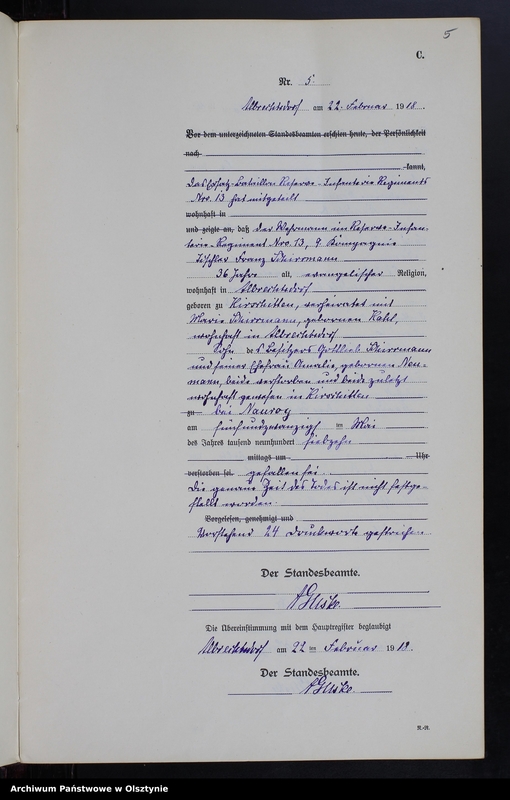 5
C.
Nr. 5.
Albrechtsdorf am 22. Februar 1918.
Vor dem unterzeichneten Standesbeamten erschien heute, der Persönlichkeit
nach
kannt,
Das Ersatz-Bataillon Reserve-Infanterie Regiments
Nro. 13 hat mitgeteilt
wohnhaft in
und zeigte an, daß der Wehrmann im Reserve-Infan-
terie-Regiment Nro. 13, 9 Kompagnie
Tischler Franz Schirrmann
36 Jahre alt, evangelischer Religion,
wohnhaft in Albrechtsdorf
geboren zu, verheiratet mit
Marie Schirrmann, geborenen
wohnhaft in Albrechtsdorf
Sohn des Besitzers Gottlieb Schirrmann
und seiner Ehefrau Amalie, geborenen Neu-
mann, beide verstorben und beide zuletzt
wohnhaft gewesen in
zu bei Nauroy
am fünfundzwanzigsten Mai
des Jahres tausend neunhundert siebzehn
mittags um Uhr
verstorben sei. gefallen sei.
Die genaue Zeit des Todes ist nicht festge-
stellt worden.
Vorgelesen, genehmigt und
Vorstehend 24 Druckworte gestrichen.
Der Standesbeamte.
Die Übereinstimmung mit dem Hauptregister beglaubigt
Albrechtsdorf am 22 ten Februar 1918.
Der Standesbeamte.
Archiwum Państwowe w Olsztynie